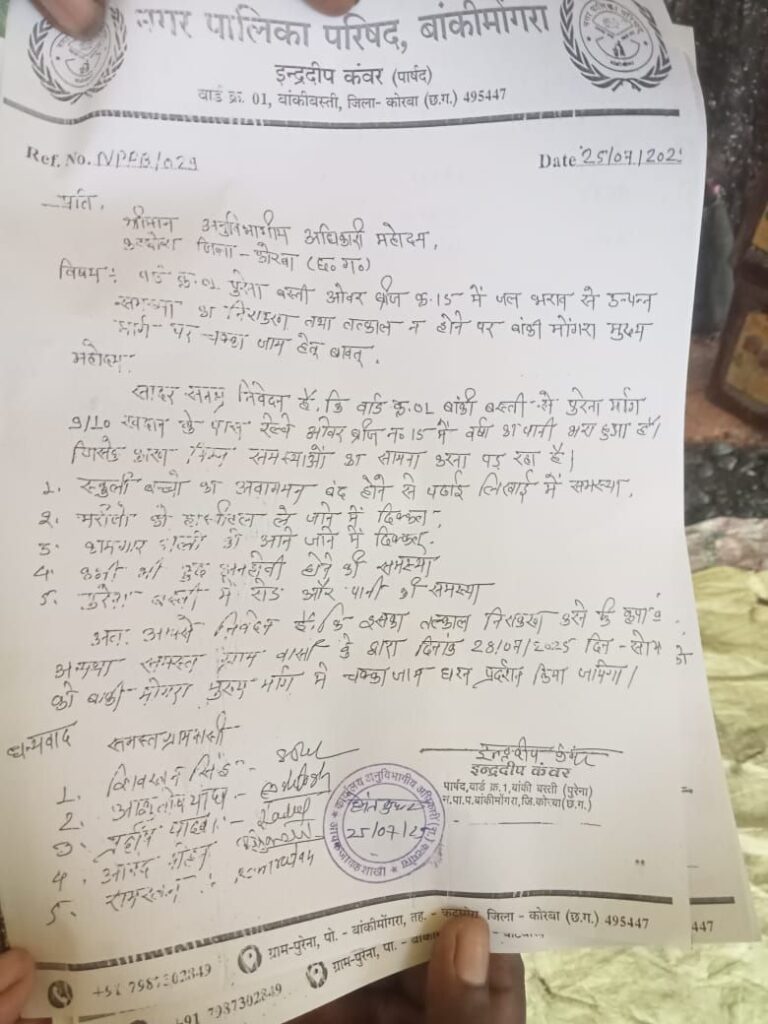 नगर पालिका परिषद, बांकीमोंगरा
इन्द्रदीप कंवर (पार्षद)
वार्ड क्र. 01, बांकीबस्ती, जिला- कोरबा (छ.ग.) 495447
Ref. No. NPPB/029
Date 25/07/202
प्रति,
श्रीमान अनुविभागीय अधिकारी महोदय,
जिला - कोरबा (छ०ग०)
विषय: वार्ड क्र.01 पुरेना बस्ती ओवर ब्रीज क्र.15 में जल भराव से उत्पन्न
समस्या का निराकरण तथा तत्काल न होने पर बांकी मोंगरा मुख्य
मार्ग पर चक्का जाम हेतु बाबत्.
महोदय,
सादर नम्र निवेदन है. कि वार्ड क्र.01 बांकी बस्ती से पुरेना मार्ग
9/10 खदान के पास रेल्वे ओवर ब्रीज न० 15 में वर्षा का पानी भरा हुआ है।
जिसके कारण निम्न समस्याओं का सामना करना पड़ रहा है।
1. स्कुली बच्चो का आवागमन बंद होने से पढाई लिखाई में समस्या.
2. मरीजो को हास्पीटल ले जाने में दिक्कत.
3. कामगार वालो को आने जाने में दिक्कत.
4. कभी भी कुछ अनहोनी होने की समस्या
5. पुरेना बस्ती में रोड और पानी की समस्या
अतः आपसे निवेदन है. कि इसका तत्काल निराकरण करने की कृपा
अन्यथा समस्त ग्राम वासी के द्वारा दिनांक 28/07/2025 दिन - सोम
को बांकी मोंगरा मुख्य मार्ग में चक्का जाम धरना प्रदर्शन किया जायेगा।
धन्यवाद समस्त ग्रामवासी
1. सिंह
2.
3. यादव
4. आनंद
5.
इन्द्रदीप कंवर
इन्द्रदीप कंवर
पार्षद,वार्ड क्र.1,बांकी बस्ती (पुरेना)
न.पा.प.बांकीमोंगरा,जि.कोरबा(छ.ग.)
25/07/25
ग्राम-पुरेना, पो. - बांकीमोंगरा, तह. - कटघोरा, जिला - कोरबा (छ.ग.) 495447
+91 7987302849
ग्राम-पुरेना, पो. - बांकी
- कोरबा (छ.ग.) 495447
+91 7987302849